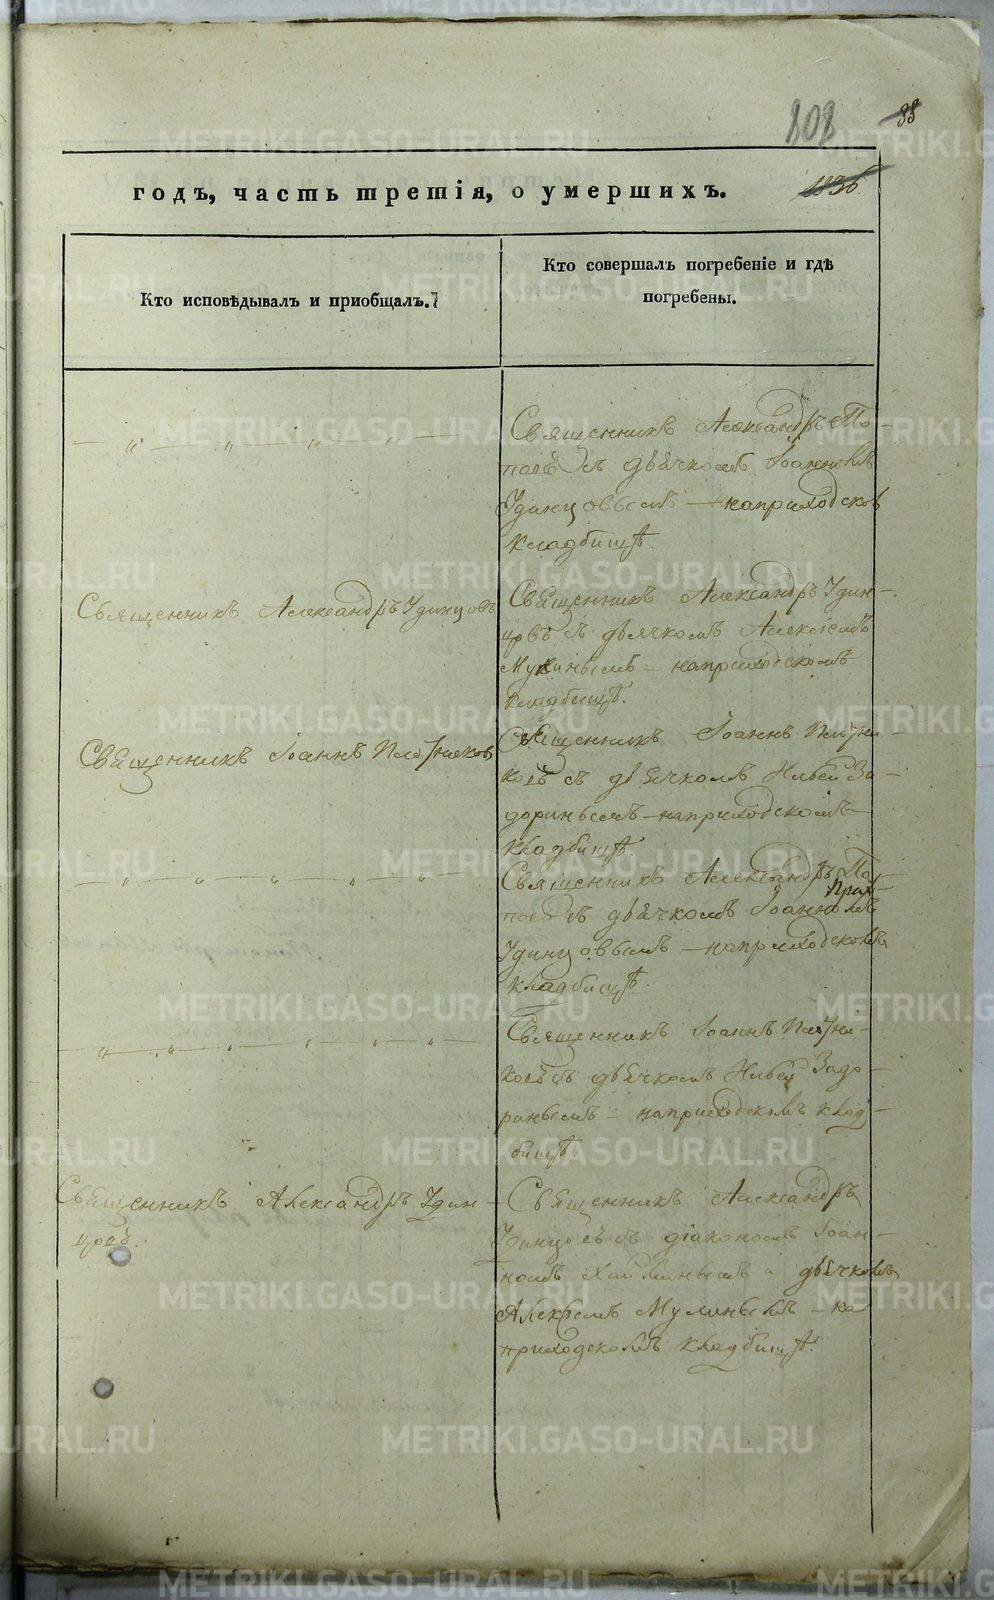 808 88
годъ, часть третія, о умершихъ. 1836
Кто исповѣдывалъ и приобщалъ.
Кто совершалъ погребеніе и гдѣ
погребены.
Священникъ Александръ По-
повъ съ дьячкомъ Іоанномъ
Удинцовымъ — на приходскомъ
кладбищѣ.
Священникъ Александръ Удинцовъ
Священникъ Александръ Удин-
цовъ съ дьячкомъ Алексіемъ
— на приходскомъ
кладбищѣ.
Священникъ Іоаннъ Плотниковъ
Священникъ Іоаннъ Плотни-
ковъ съ дьячкомъ За-
доринымъ — на приходскомъ
кладбищѣ
Священникъ Александръ По-
повъ съ дьячкомъ Іоанномъ
Удинцовымъ — на приходскомъ
кладбищѣ.
Священникъ Іоаннъ Плотни-
ковъ съ дьячкомъ Задо-
ринымъ — на приходскомъ клад-
бищѣ.
Священникъ Александръ Удин-
цовъ.
Священникъ Александръ
Удинцовъ съ діакономъ Іоан-
номъ дьячкомъ
Алексѣемъ — на
приходскомъ кладбищѣ.
METRIKI.GASO-URAL.RU